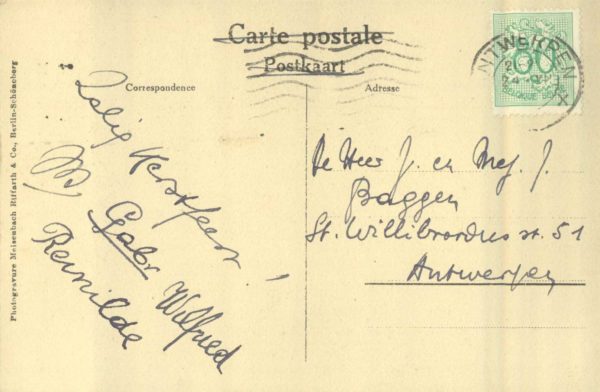 Carte postale
Postkaart
Correspondence
Adresse
ANTWERPEN
60
BELGIQUE BELGIE
Zalig Kerstfeest!
Gabr
Wilfried
Reinilde
De Heer J. en Mej. J.
Baggen
St. Willibrordus st. 51
Antwerpen
Photogravure Meisenbach Riffarth & Co., Berlin-Schöneberg